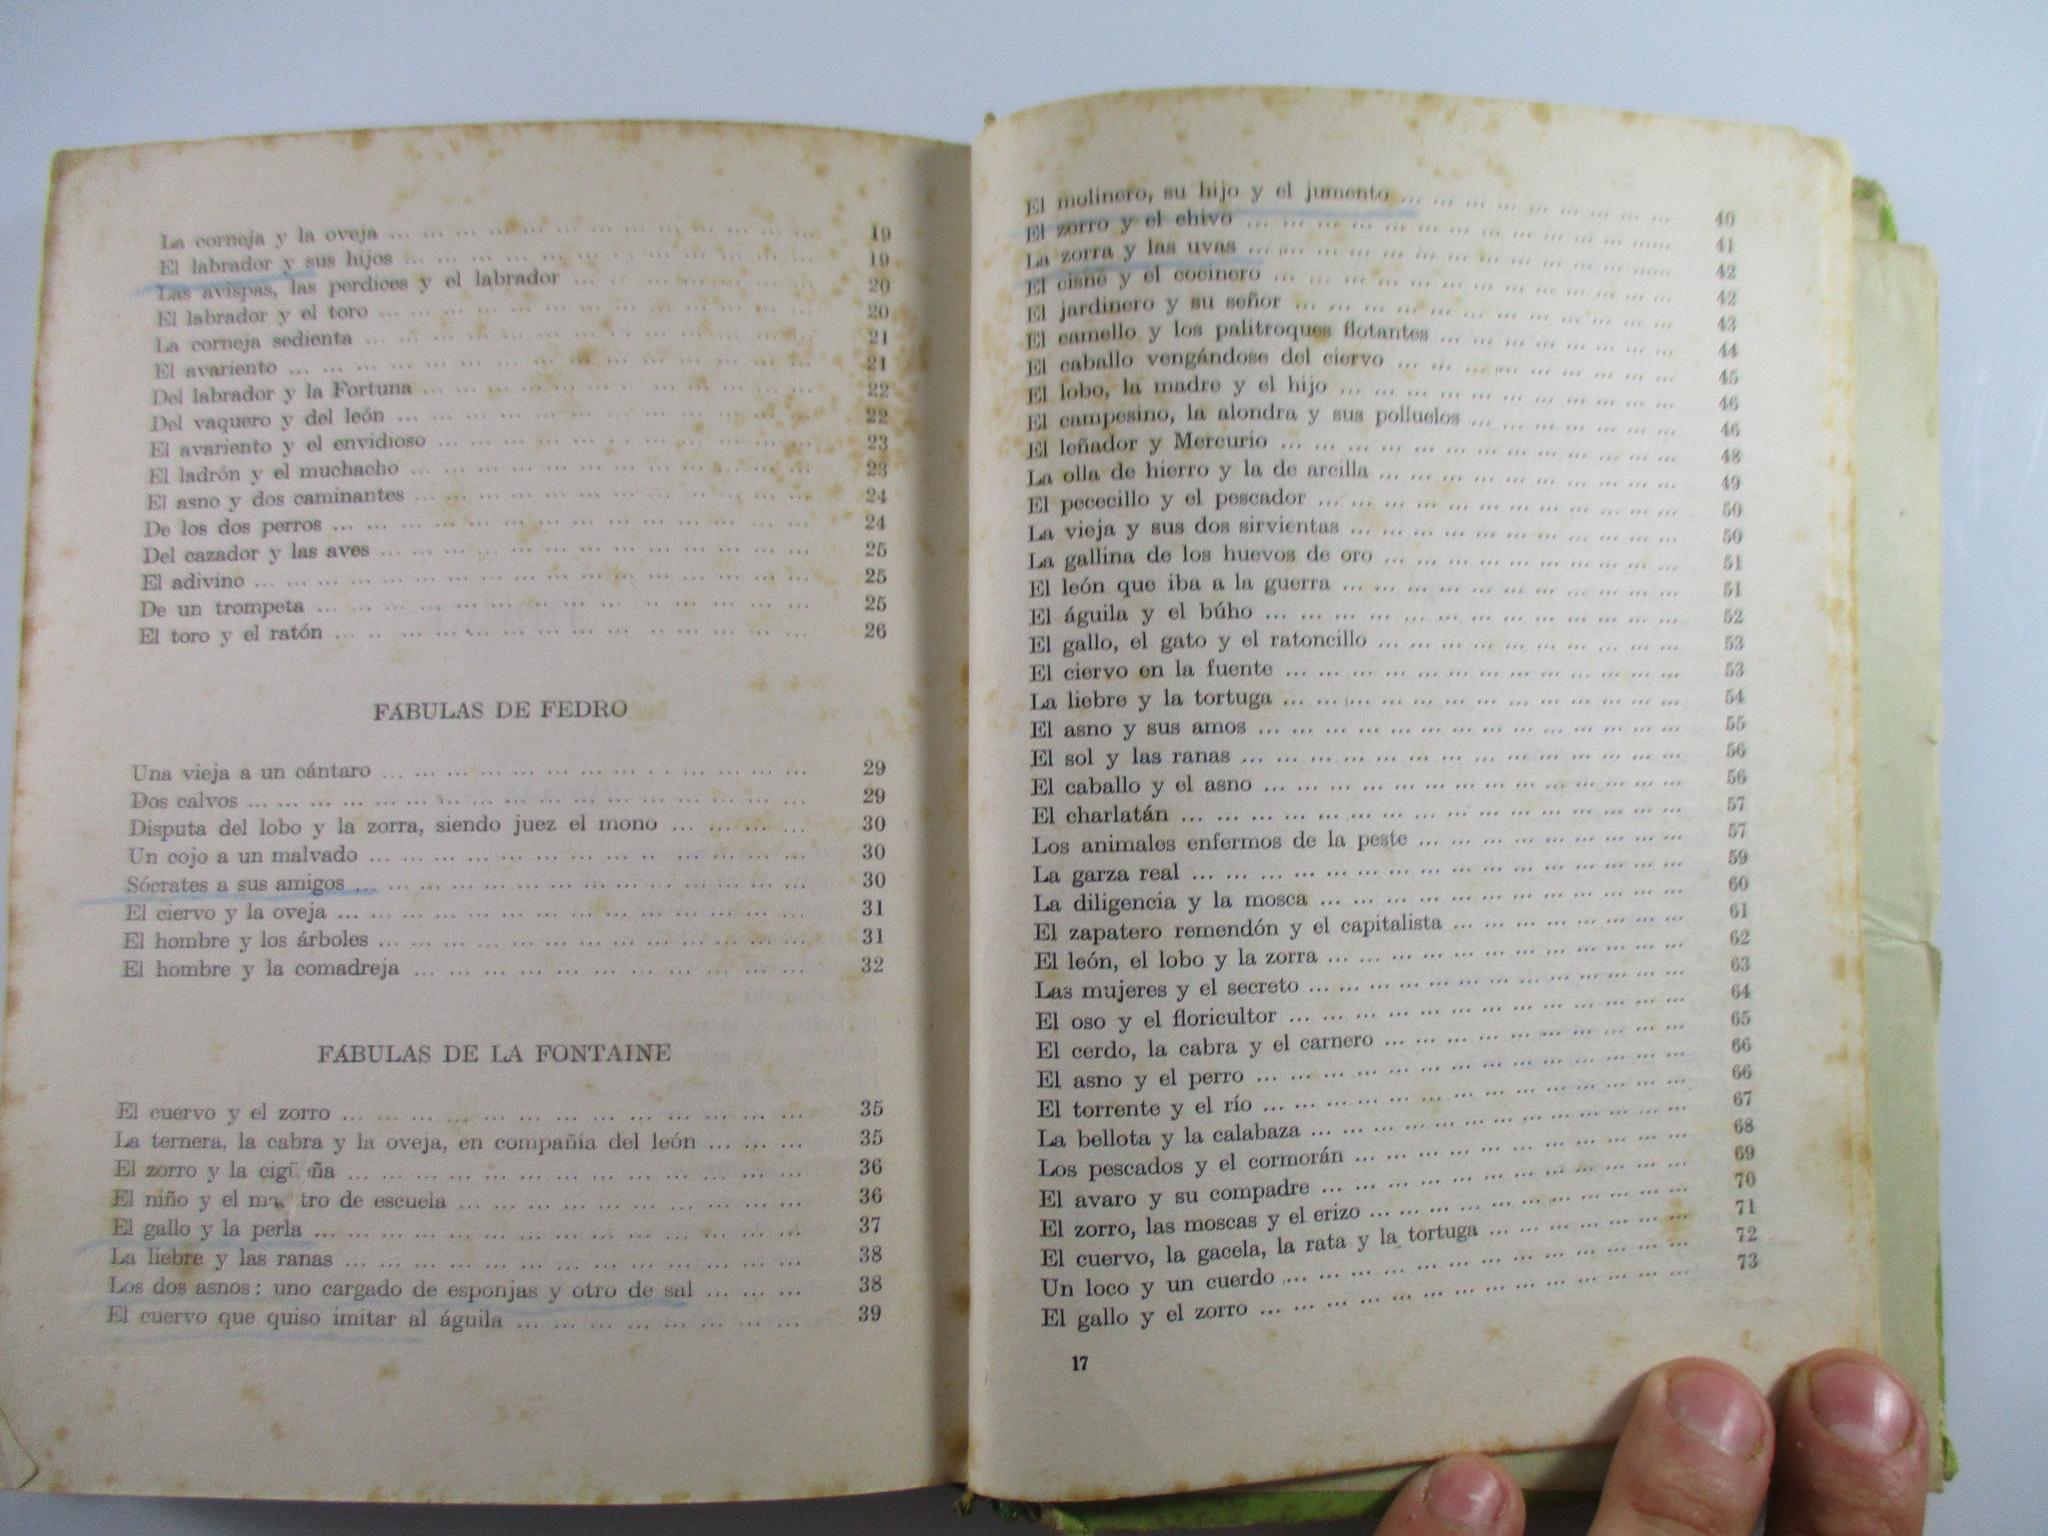 La corneja y la oveja ... 19
El labrador y sus hijos ... 19
Las avispas, las perdices y el labrador ... 20
El labrador y el toro ... 20
La corneja sedienta ... 21
El avariento ... 21
Del labrador y la Fortuna ... 22
Del vaquero y del león ... 22
El avariento y el envidioso ... 23
El ladrón y el muchacho ... 23
El asno y dos caminantes ... 24
De los dos perros ... 24
Del cazador y las aves ... 25
El adivino ... 25
De un trompeta ... 25
El toro y el ratón ... 26
FÁBULAS DE FEDRO
Una vieja a un cántaro ... 29
Dos calvos ... 29
Disputa del lobo y la zorra, siendo juez el mono ... 30
Un cojo a un malvado ... 30
Sócrates a sus amigos ... 30
El ciervo y la oveja ... 31
El hombre y los árboles ... 31
El hombre y la comadreja ... 32
FÁBULAS DE LA FONTAINE
El cuervo y el zorro ... 35
La ternera, la cabra y la oveja, en compañía del león ... 35
El zorro y la cigü ña ... 36
El niño y el ma tro de escuela ... 36
El gallo y la perla ... 37
La liebre y las ranas ... 38
Los dos asnos: uno cargado de esponjas y otro de sal ... 38
El cuervo que quiso imitar al águila ... 39
El molinero, su hijo y el jumento ... 40
El zorro y el chivo ... 41
La zorra y las uvas ... 42
El cisne y el cocinero ... 42
El jardinero y su señor ... 43
El camello y los palitroques flotantes ... 44
El caballo vengándose del ciervo ... 45
El lobo, la madre y el hijo ... 46
El campesino, la alondra y sus polluelos ... 46
El leñador y Mercurio ... 48
La olla de hierro y la de arcilla ... 49
El pececillo y el pescador ... 50
La vieja y sus dos sirvientas ... 50
La gallina de los huevos de oro ... 51
El león que iba a la guerra ... 51
El águila y el búho ... 52
El gallo, el gato y el ratoncillo ... 53
El ciervo en la fuente ... 53
La liebre y la tortuga ... 54
El asno y sus amos ... 55
El sol y las ranas ... 56
El caballo y el asno ... 56
El charlatán ... 57
Los animales enfermos de la peste ... 57
La garza real ... 59
La diligencia y la mosca ... 60
El zapatero remendón y el capitalista ... 61
El león, el lobo y la zorra ... 62
Las mujeres y el secreto ... 63
El oso y el floricultor ... 64
El cerdo, la cabra y el carnero ... 65
El asno y el perro ... 66
El torrente y el río ... 66
La bellota y la calabaza ... 67
Los pescados y el cormorán ... 68
El avaro y su compadre ... 69
El zorro, las moscas y el erizo ... 70
El cuervo, la gacela, la rata y la tortuga ... 71
Un loco y un cuerdo ... 72
El gallo y el zorro ... 73
17